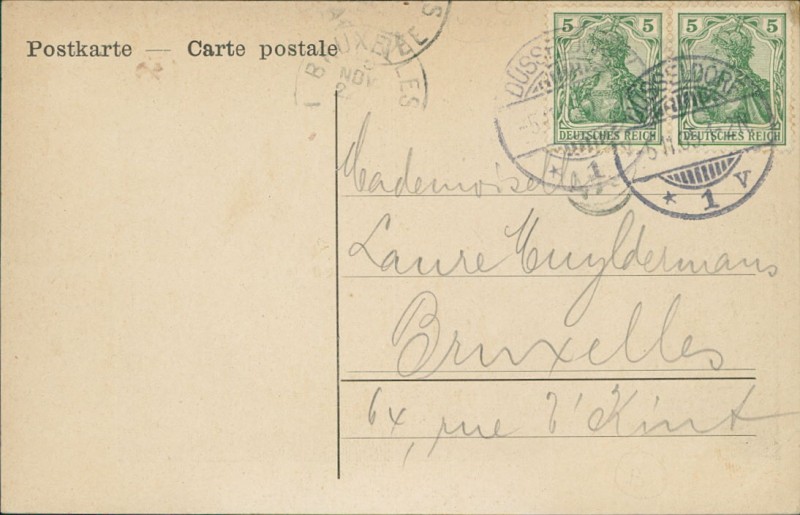 Postkarte — Carte postale
BRUXELLES
NOV
5 5
DEUTSCHES REICH
5 5
DEUTSCHES REICH
DÜSSELDORF
* 1
DÜSSELDORF
* 1 v
Mademoiselle
Laure Cuyldermans
Bruxelles
64, rue t'Kint